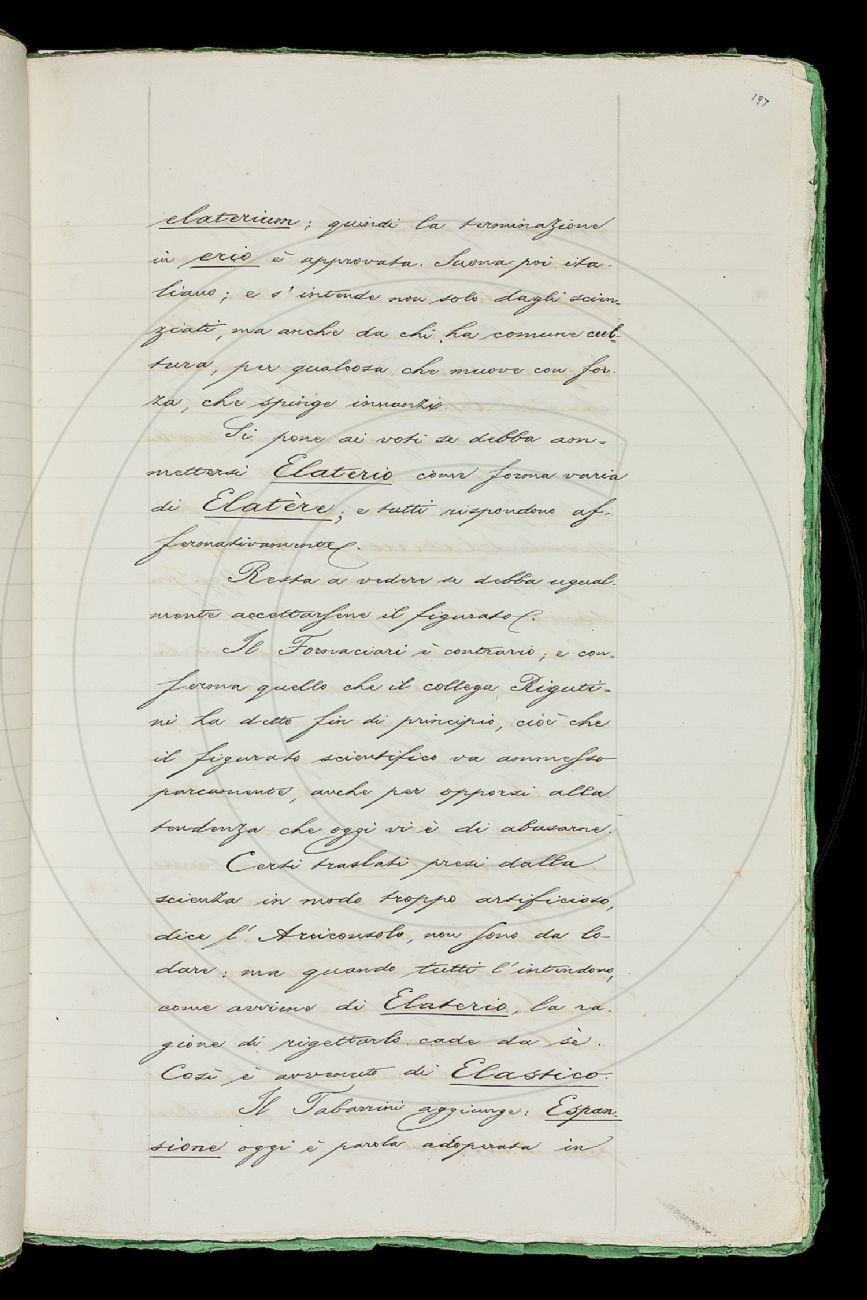 197
elaterium; quindi la terminazione
in erio è approvata. Suona poi ita-
liano; e s'intende non solo dagli scien-
ziati, ma anche da chi ha comune cul-
tura, per qualcosa che muove con for-
za, che spinge innanzi.
Si pone ai voti se debba am-
mettersi Elaterio come forma varia
di Elatère; e tutti rispondono af-
fermativamente.
Resta a vedere se debba ugual-
mente accettarsene il figurato.
Il Fornaciari è contrario; e con-
ferma quello che il collega Riguti-
ni ha detto fin di principio, cioè che
il figurato scientifico va ammesso
parcamente, anche per opporsi alla
tendenza che oggi vi è di abusarne.
Certi traslati presi dalla
scienza in modo troppo artificioso,
dice l'Arciconsolo, non sono da lo-
dare: ma quando tutti l'intendono,
come avviene di Elaterio, la ra-
gione di rigettarlo cade da sè.
Così è avvenuto di Elastico.
Il Tabarrini aggiunge: Espan-
sione oggi è parola adoperata in